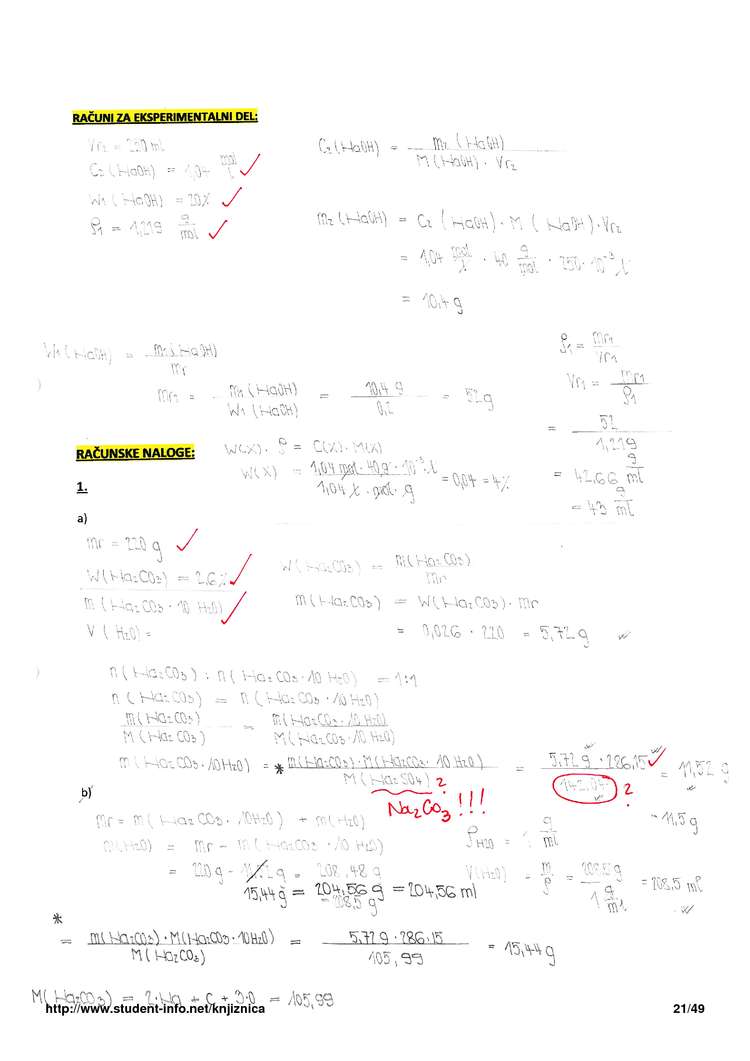 RAČUNI ZA EKSPERIMENTALNI DEL:
Vr₂ = 250 ml
C₂ (NaOH) = 1,04 mol/l
W₁ (NaOH) = 20%
ρ₁ = 1,219 g/ml
C₂ (NaOH) = m₂ (NaOH) / M (NaOH) · Vr₂
m₂ (NaOH) = C₂ (NaOH) · M (NaOH) · Vr₂
= 1,04 mol/l · 40 g/mol · 250 · 10⁻³ l
= 10,4 g
W₁ (NaOH) = m₁ (NaOH) / mr
mr₁ = m₁ (NaOH) / W₁ (NaOH) = 10,4 g / 0,2 = 52 g
ρ₁ = mr₁ / Vr₁
Vr₁ = mr₁ / ρ₁
= 52 / 1,219
= 42,66 g/ml
= 43 g/ml
RAČUNSKE NALOGE:
W(X) · ρ = C(X) · M(X)
W(X) = 1,04 mol · 40 g · 10⁻³ · l / 1,04 l · mol · g = 0,04 = 4%
1.
a)
mr = 220 g
W(Na₂CO₃) = 2,6%
m (Na₂CO₃ · 10 H₂O)
V (H₂O) =
W(Na₂CO₃) = m(Na₂CO₃) / mr
m(Na₂CO₃) = W(Na₂CO₃) · mr
= 0,026 · 220 = 5,72 g
n (Na₂CO₃) : n (Na₂CO₃ · 10 H₂O) = 1:1
n (Na₂CO₃) = n (Na₂CO₃ · 10 H₂O)
m(Na₂CO₃) / M(Na₂CO₃) = m(Na₂CO₃ · 10 H₂O) / M(Na₂CO₃ · 10 H₂O)
m (Na₂CO₃ · 10H₂O) = * m(Na₂CO₃) · M(Na₂CO₃ · 10 H₂O) / M (Na₂SO₄) ? = 5,72 g · 286,15 / 142,04 ? = 11,52 g
Na₂CO₃ !!!
= 11,5 g
b)
mr = m (Na₂CO₃ · 10H₂O) + m(H₂O)
m(H₂O) = mr - m (Na₂CO₃ · 10 H₂O)
= 220 g - 11,52 g = 208,48 g
15,44 g = 204,56 g = 204,56 ml
= 208,5 g
ρ H₂O = 1 g/ml
V(H₂O) = m / ρ = 208,5 g / 1 g/ml = 208,5 ml
*
= m(Na₂CO₃) · M(Na₂CO₃ · 10H₂O) / M(Na₂CO₃) = 5,72 g · 286,15 / 105,99 = 15,44 g
M(Na₂CO₃) = 2·Na + C + 3·O = 105,99
http://www.student-info.net/knjiznica
21/49